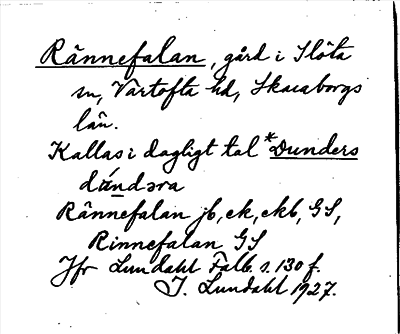 Rännefalan, gård i Slöta
sn, Vartofta hd, Skaraborgs
län.
Kallas i dagligt tal *Dunders
dúndəra
Rännefalan jb, ek, ekb, GS,
Rinnefalan GS
Jfr Lundahl Falb. s. 130 f.
I. Lundahl 1927.